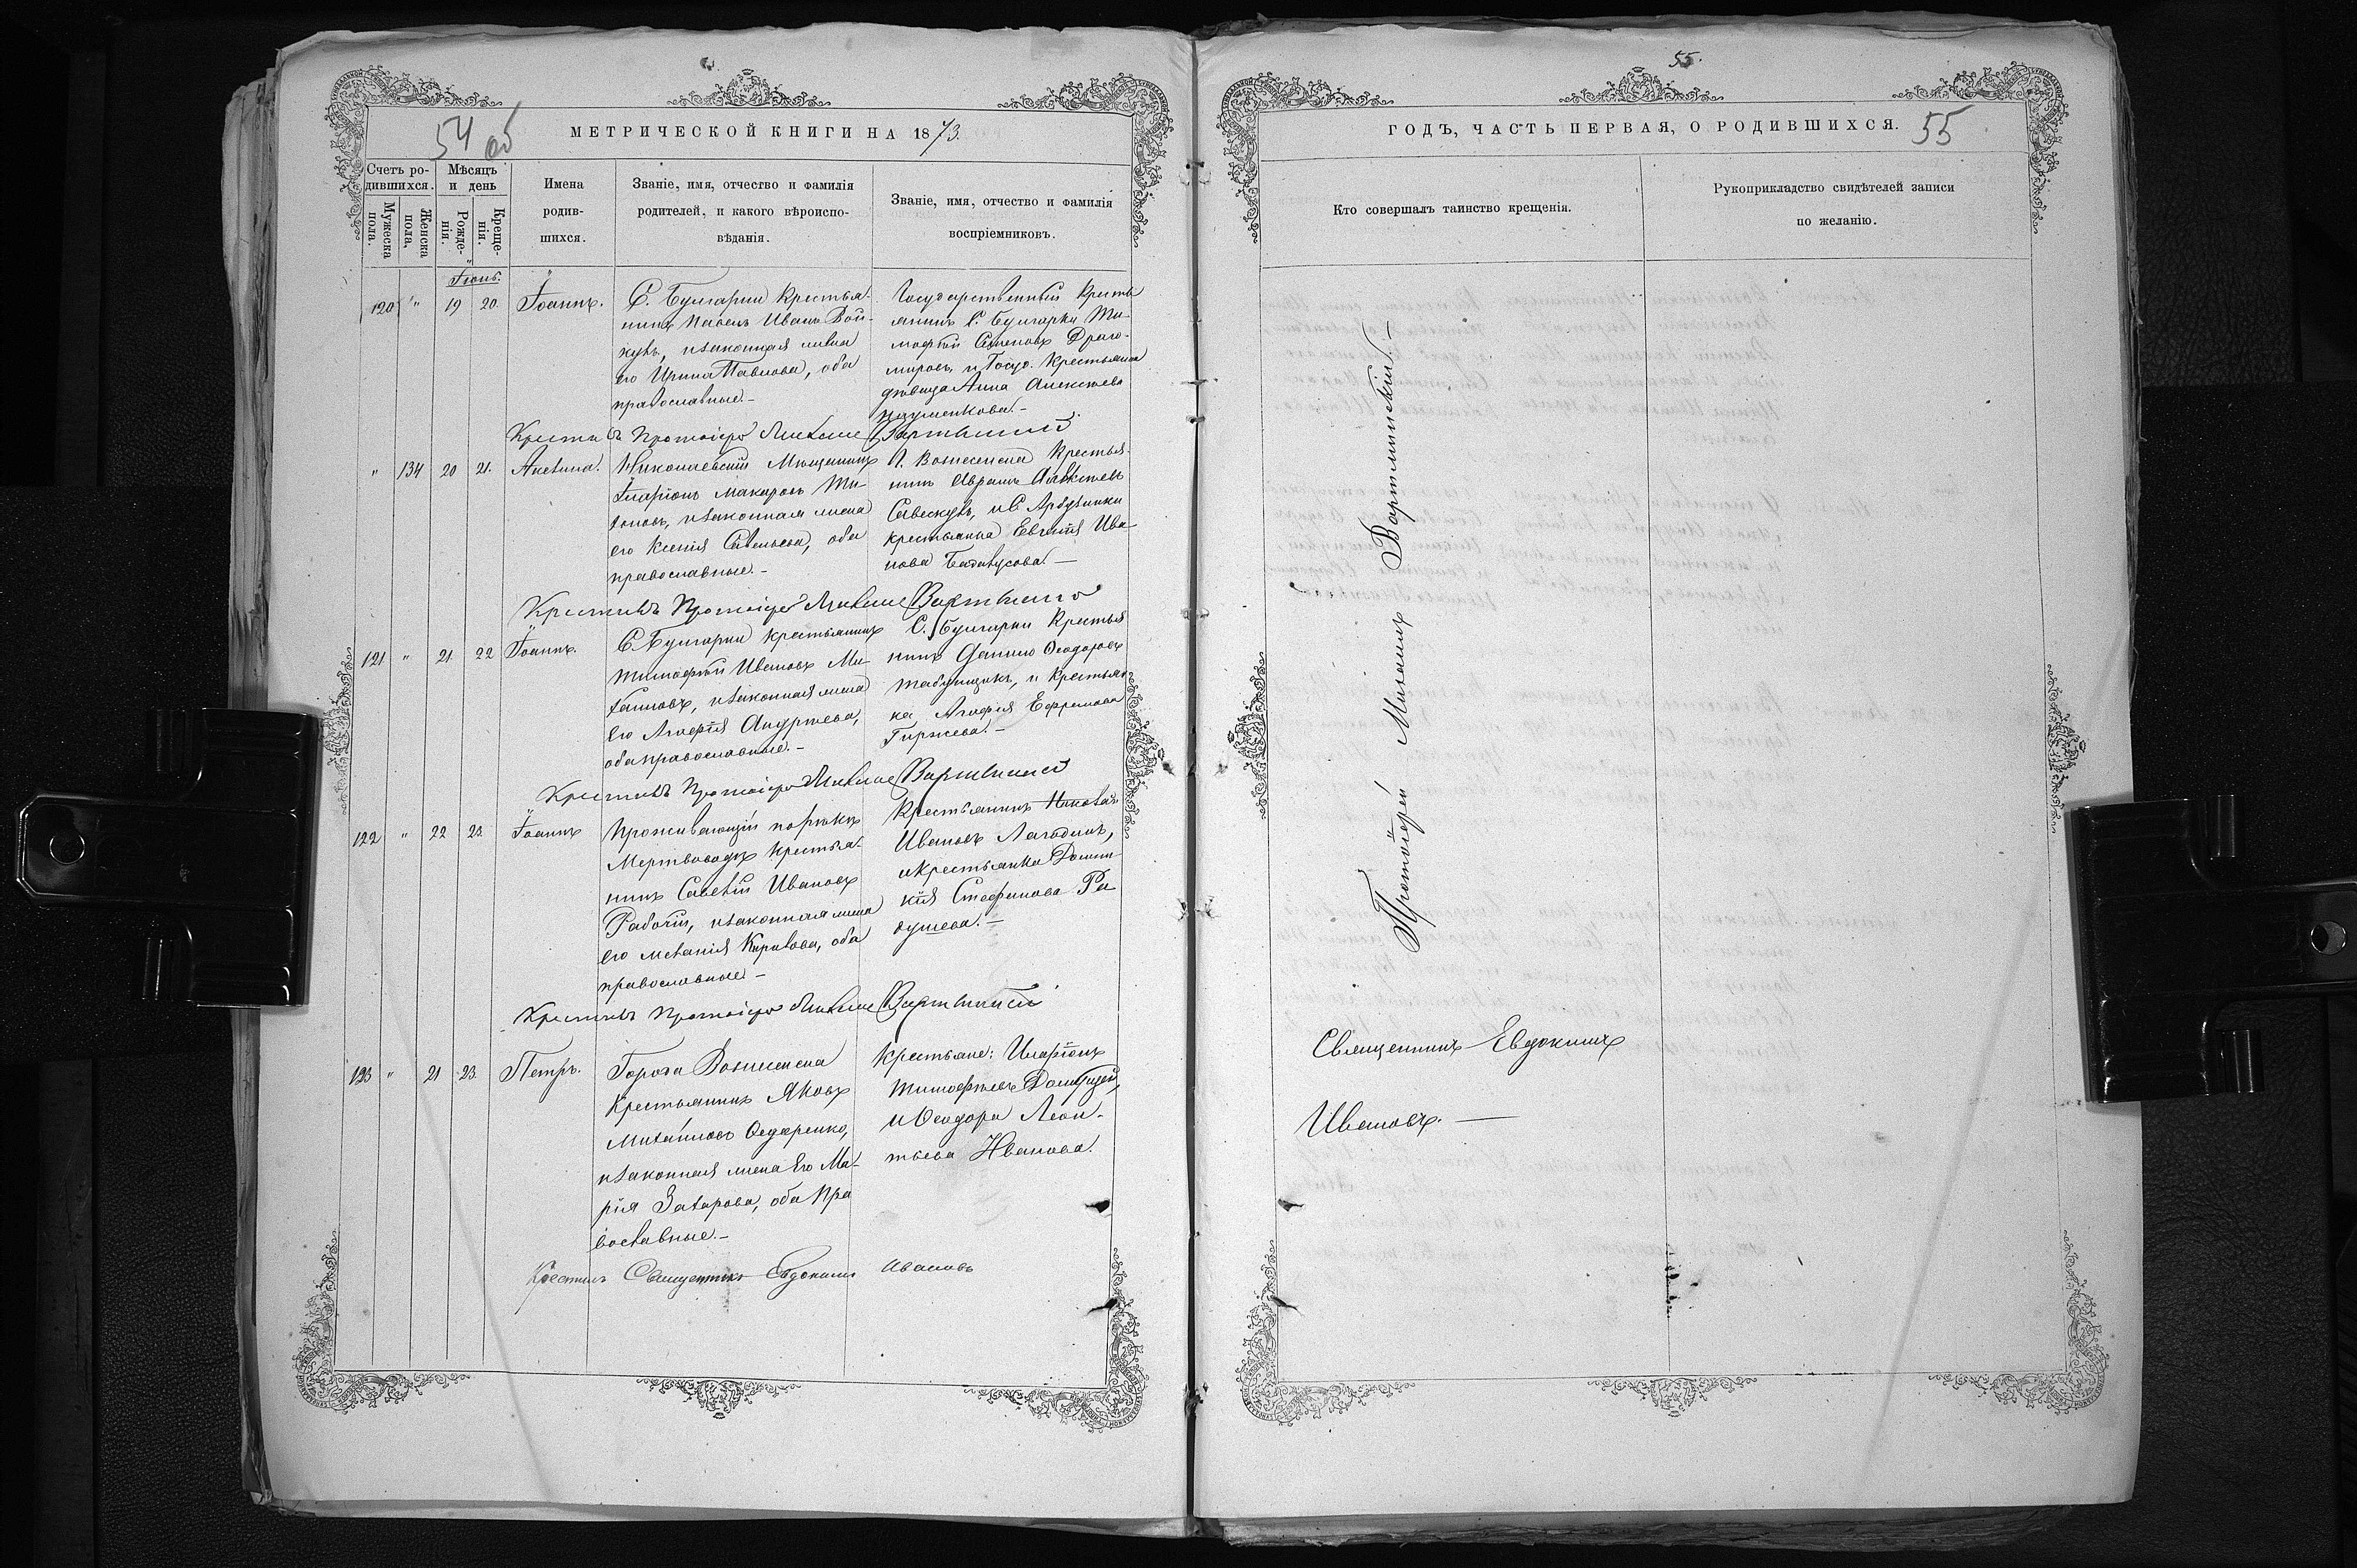 54 об
МЕТРИЧЕСКОЙ КНИГИ НА 1873.
Счетъ ро-
дившихся.
Мужеска
пола.
Женска
пола,
Мѣсяцъ
и день
Рожде-
нія.
Креще-
нія.
Имена
родив-
шихся.
Званіе, имя, отчество и фамилія
родителей, и какого вѣроиспо-
вѣданія.
Званіе, имя, отчество и фамилія
воспріемниковъ.
Іюнь.
120 " 19 20. Іоаннъ.
С. Булгарки Крестья-
нинъ Павелъ Ивановъ Вой-
кулъ, и законная жена
его Ирина Павлова, оба
православные.-
Государственный Кресть
янинъ С. Булгарки Ти-
мофей Семеновъ Драго-
мировъ, и Госуд. Крестьянка
дѣвица Анна Алексѣева
Крестилъ Протоіерей Михаилъ Вартминскій
" 134 20 21. Акелина.
Николаевскій Мѣщанинъ
Иларіонъ Макаровъ Ти-
хоновъ, и законная жена
его Ксенія Савельева, оба
православные.-
Г. Вознесенска Крестья-
нинъ Аврамъ Алексѣевъ
и С. Арбузинки
крестьянка Евгенія Ива-
нова
Крестилъ Протоіерей Михаилъ Вартминскій
121 " 21 22 Іоаннъ.
С. Булгарки крестьянинъ
Тимофей Ивановъ Ми-
хайловъ, и законная жена
его Агафія Андреева,
оба православные.-
С. Булгарки Крестья
нинъ Данило Ѳеодоровъ
Табунщикъ, и Крестьян
ка Агафія Ефремова
Гиржева.-
Крестилъ Протоіерей Михаилъ Вартминскій
122 " 22 23. Іоаннъ
Проживающій по рѣкѣ
Мертвоводѣ крестья-
нинъ Савелій Ивановъ
Рабочій, и законная жена
его Меланія Кирилова, оба
православные-
Крестьянинъ Николай
Ивановъ Лагодинъ,
и крестьянка Домни
кія Стефанова Ра
душева.-
Крестилъ Протоіерей Михаилъ Вартминскій
123 " 21 23. Петръ.
Города Вознесенска
Крестьянинъ Яковъ
Михайловъ Ѳедаренко,
и законная жена его Ма-
рія Захарова, оба пра
вославные.-
Крестьяне: Иларіонъ
Тимофѣевъ
и Ѳеодора Леон-
тьева Иванова.
Крестилъ Священникъ Евдокимъ Ивановъ
55.
ГОДЪ, ЧАСТЬ ПЕРВАЯ, О РОДИВШИХСЯ. 55
Кто совершалъ таинство крещенія.
Рукоприкладство свидѣтелей записи
по желанію.
Протоіерей Михаилъ Вартминскій.-
Священникъ Евдокимъ
Ивановъ.-